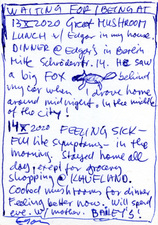 WAITING FOR/BEING AT
13 X 2020 Great MUSHROOM
LUNCH w/ Edgar in my house.
DINNER @ Edgar's in
He saw
a big FOX behind
my car when I drove home
around midnight, in the middle
of the city!
14 X 2020 FEELING SICK-
FLU like symptoms - in the
morning. Stayed home all
day, exept for grocery
shopping @ KAUFLAND.
Cooked mushrooms for dinner
Feeling better now. Will spend
eve. w/ mother. BAILEY'S!